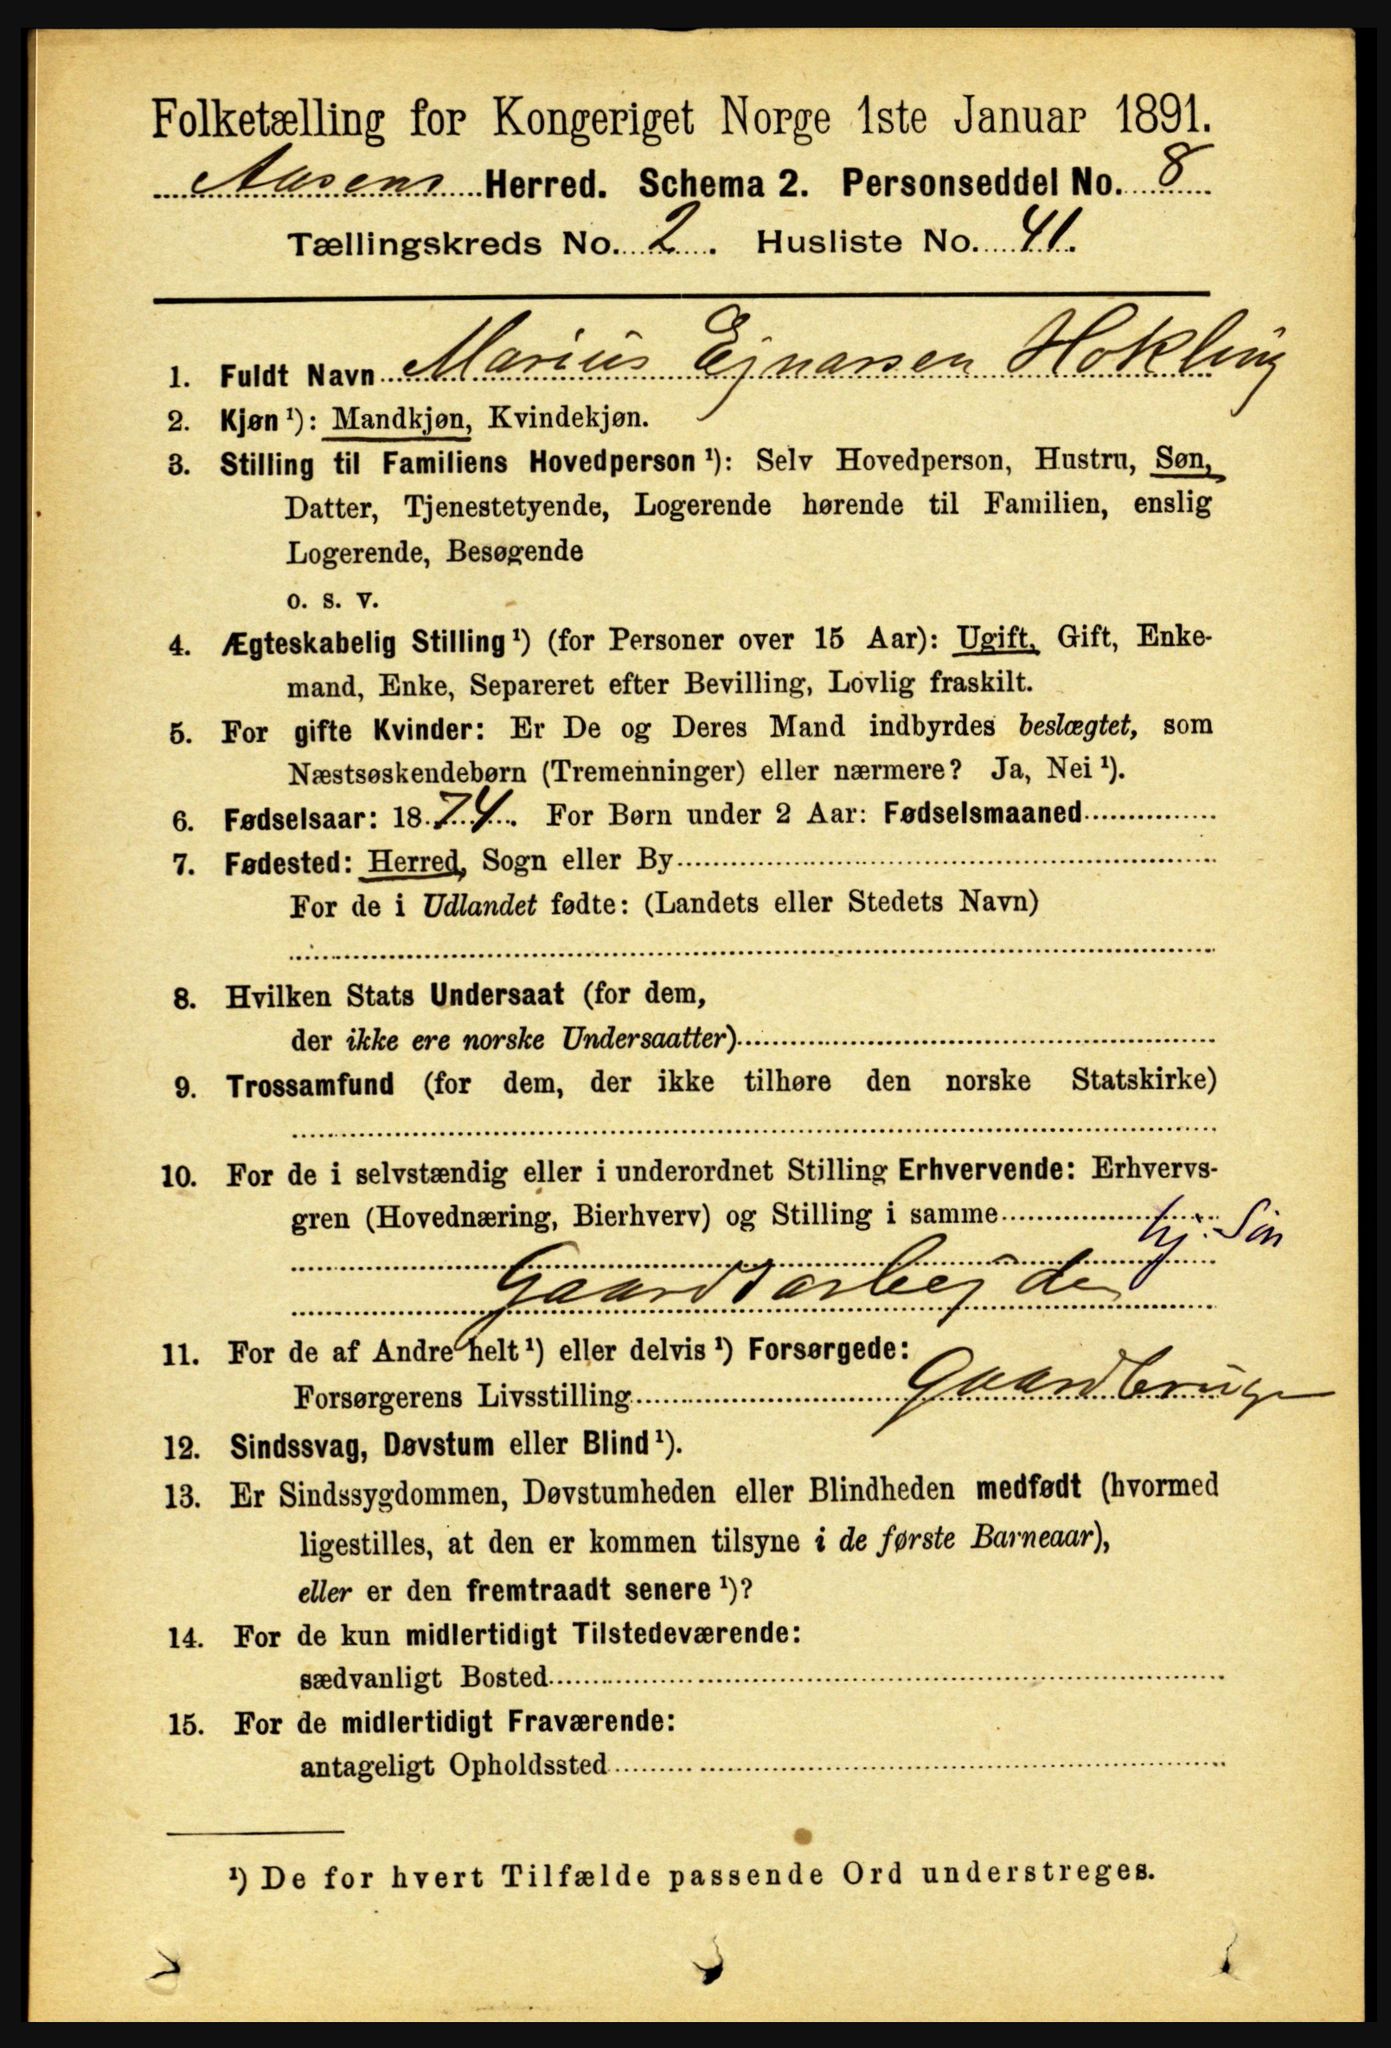 Folketælling for Kongeriget Norge 1ste Januar 1891.
Aasens Herred. Schema 2. Personseddel No. 8
Tællingskreds No. 2. Husliste No. 41.
1. Fuldt Navn Marius Ejnarsen Hokling
2. Kjøn ¹): Mandkjøn, Kvindekjøn.
3. Stilling til Familiens Hovedperson ¹): Selv Hovedperson, Hustru, Søn,
Datter, Tjenestetyende, Logerende hørende til Familien, enslig
Logerende, Besøgende
o. s. v.
4. Ægteskabelig Stilling ¹) (for Personer over 15 Aar): Ugift, Gift, Enke-
mand, Enke, Separeret efter Bevilling, Lovlig fraskilt.
5. For gifte Kvinder: Er De og Deres Mand indbyrdes beslægtet, som
Næstsøskendebørn (Tremenninger) eller nærmere? Ja, Nei ¹).
6. Fødselsaar: 1874. For Børn under 2 Aar: Fødselsmaaned
7. Fødested: Herred, Sogn eller By
For de i Udlandet fødte: (Landets eller Stedets Navn)
8. Hvilken Stats Undersaat (for dem,
der ikke ere norske Undersaatter)
9. Trossamfund (for dem, der ikke tilhøre den norske Statskirke)
10. For de i selvstændig eller i underordnet Stilling Erhvervende: Erhvervs-
gren (Hovednæring, Bierhverv) og Stilling i samme
hj. Søn
Gaardsarbejde
11. For de af Andre helt ¹) eller delvis ¹) Forsørgede:
Forsørgerens Livsstilling Gaardbruger
12. Sindssvag, Døvstum eller Blind ¹).
13. Er Sindssygdommen, Døvstumheden eller Blindheden medfødt (hvormed
ligestilles, at den er kommen tilsyne i de første Barneaar),
eller er den fremtraadt senere ¹)?
14. For de kun midlertidigt Tilstedeværende:
sædvanligt Bosted
15. For de midlertidigt Fraværende:
antageligt Opholdssted
¹) De for hvert Tilfælde passende Ord understreges.